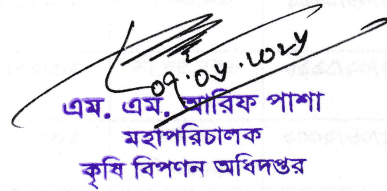 ০৭.০৮.২০২৪
এম. এম. আরিফ পাশা
মহাপরিচালক
কৃষি বিপণন অধিদপ্তর